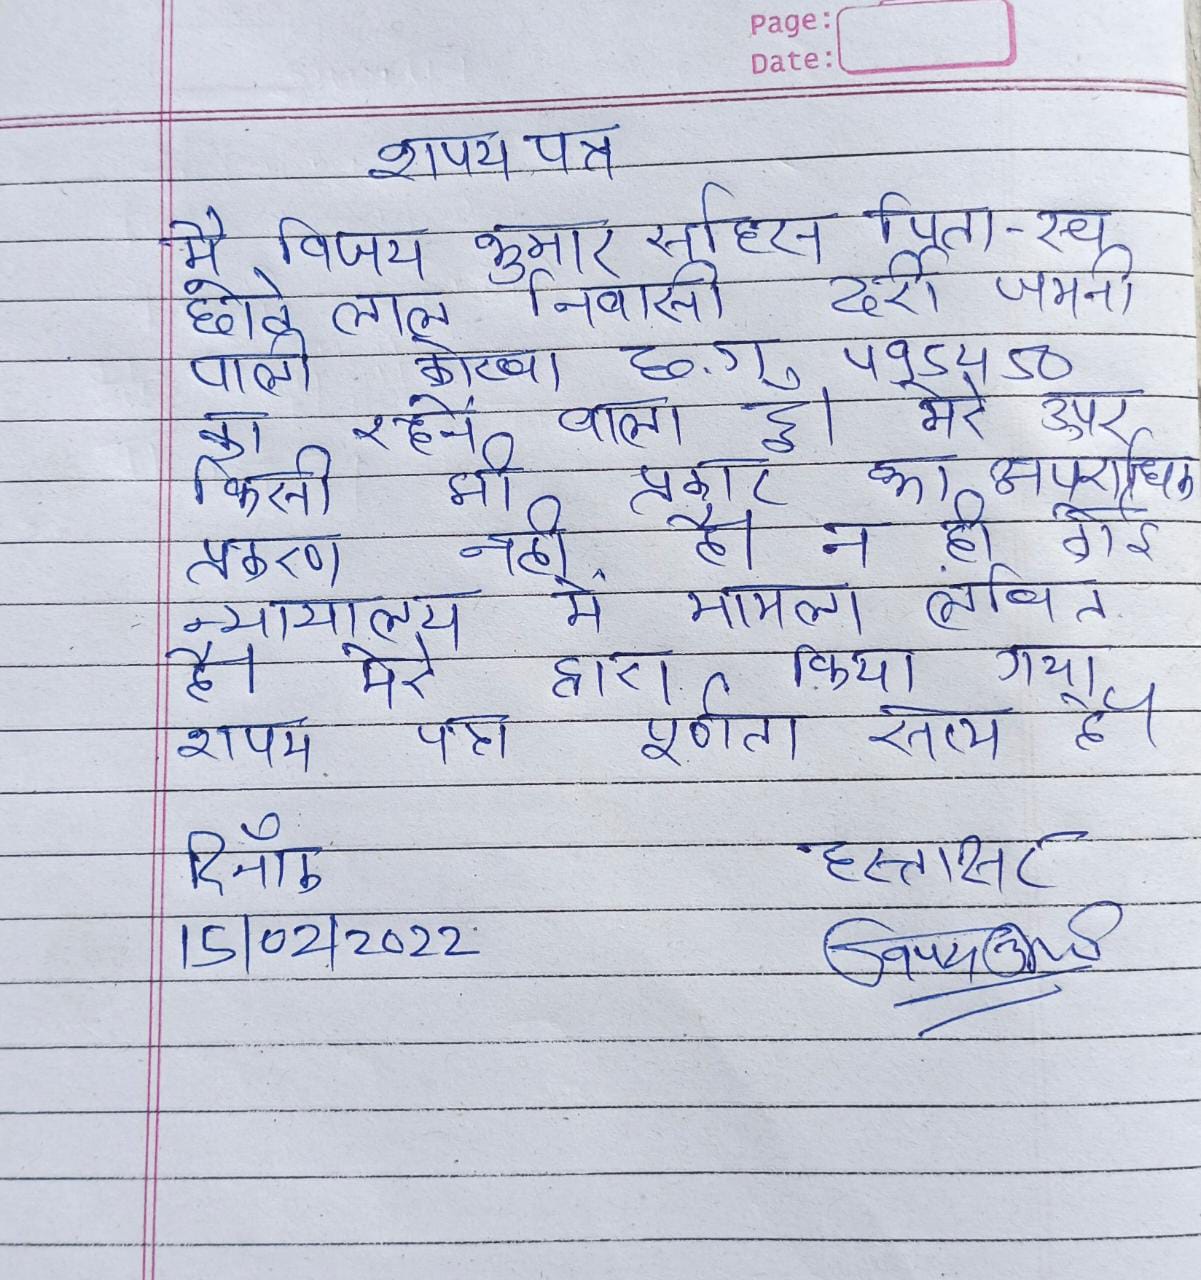 Page:
Date:
शपथ पत्र
मै विजय कुमार सहिस पिता-स्व
छोटे लाल निवासी दर्री जमनी
पाली कोरबा छ.ग.
का रहने वाला हु। मेरे उपर
किसी भी प्रकार का अपराधिक
प्रकरण नही है। न ही कोई
न्यायालय में मामला लंबित
है। मेरे द्वारा किया गया
शपथ पत्र पूर्णता सत्य है।
दिनाँक
हस्ताक्षर
15/02/2022